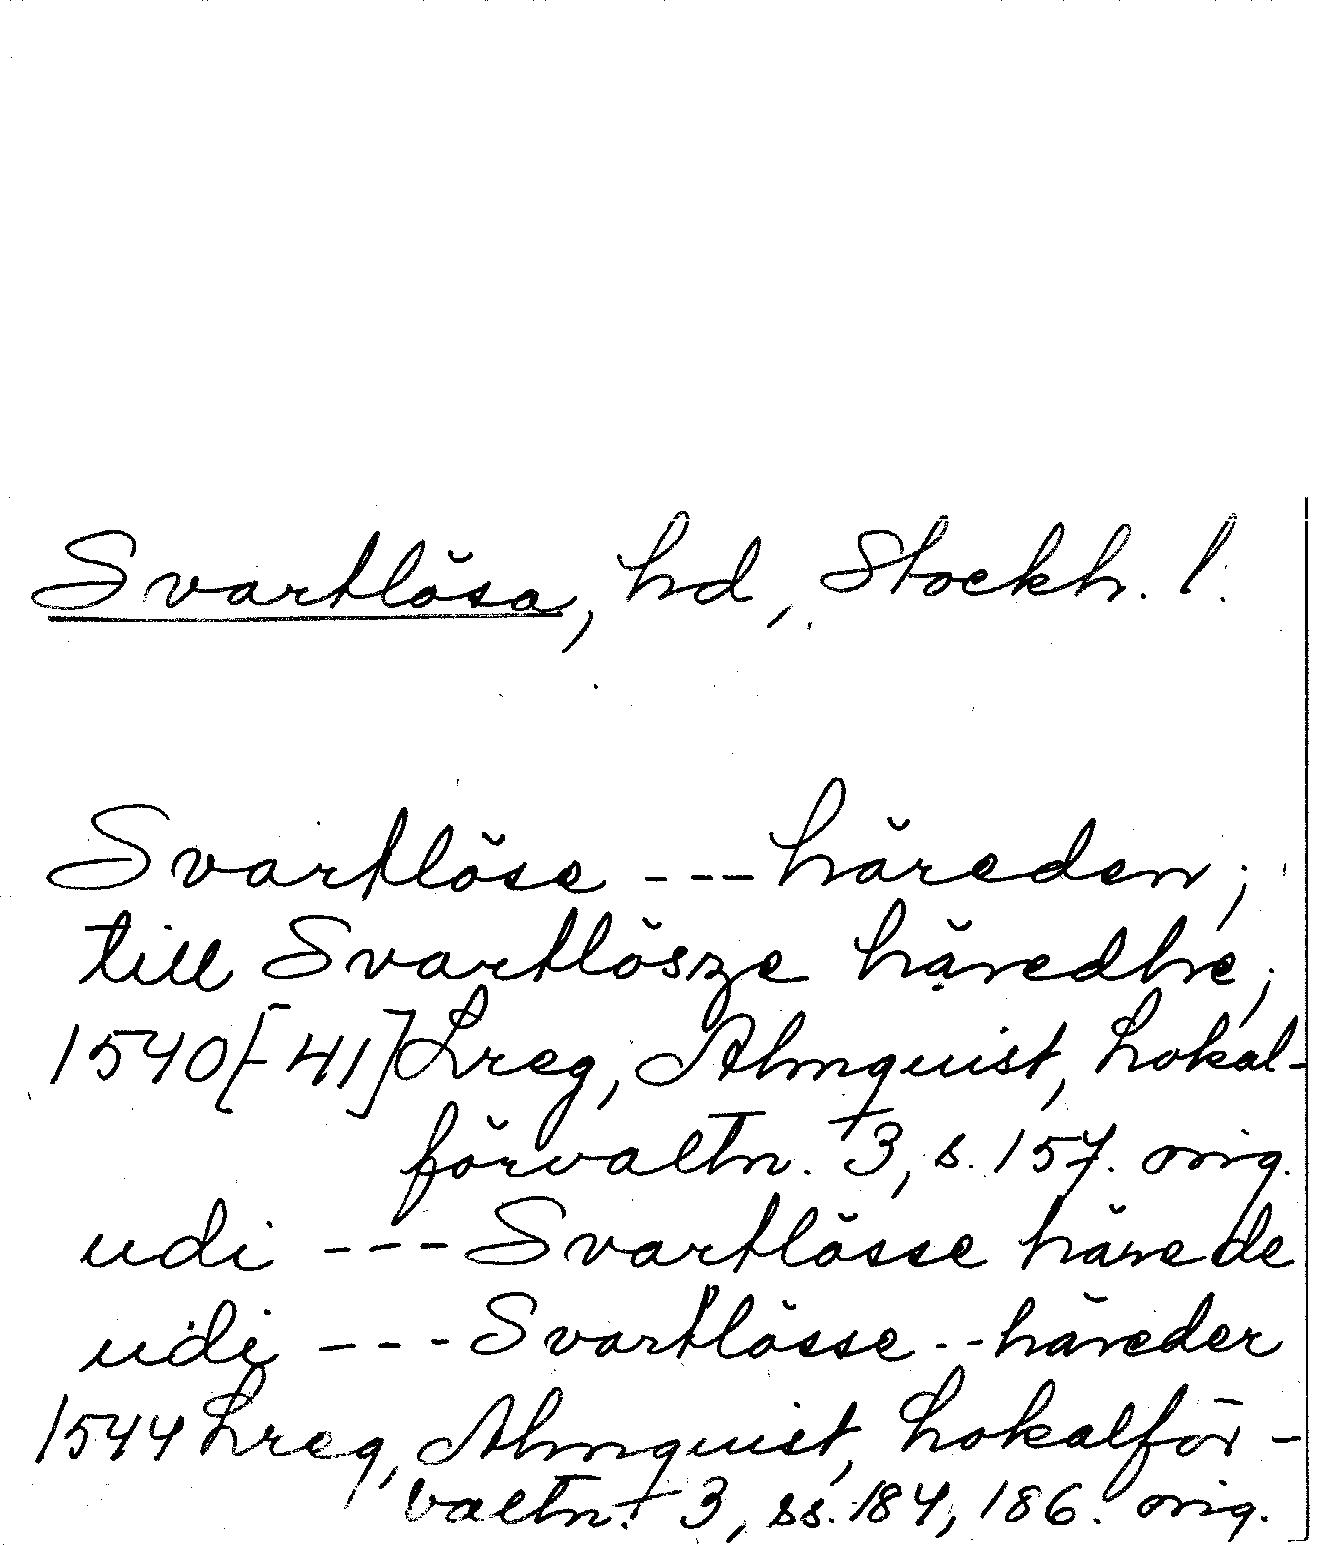 Svartlösa, hd, Stockh. l.
Svartlöse --- häreden;
till Svartlösze häredhe;
1540[-41] Lreg, Almquist, Lokal-
förvaltn. 3, s. 157. orig.
udi --- Svartlösse härede
udi --- Svartlösse -- häreder
1544 Lreg, Almquist, Lokalför-
valtn. 3, ss. 184, 186. orig.